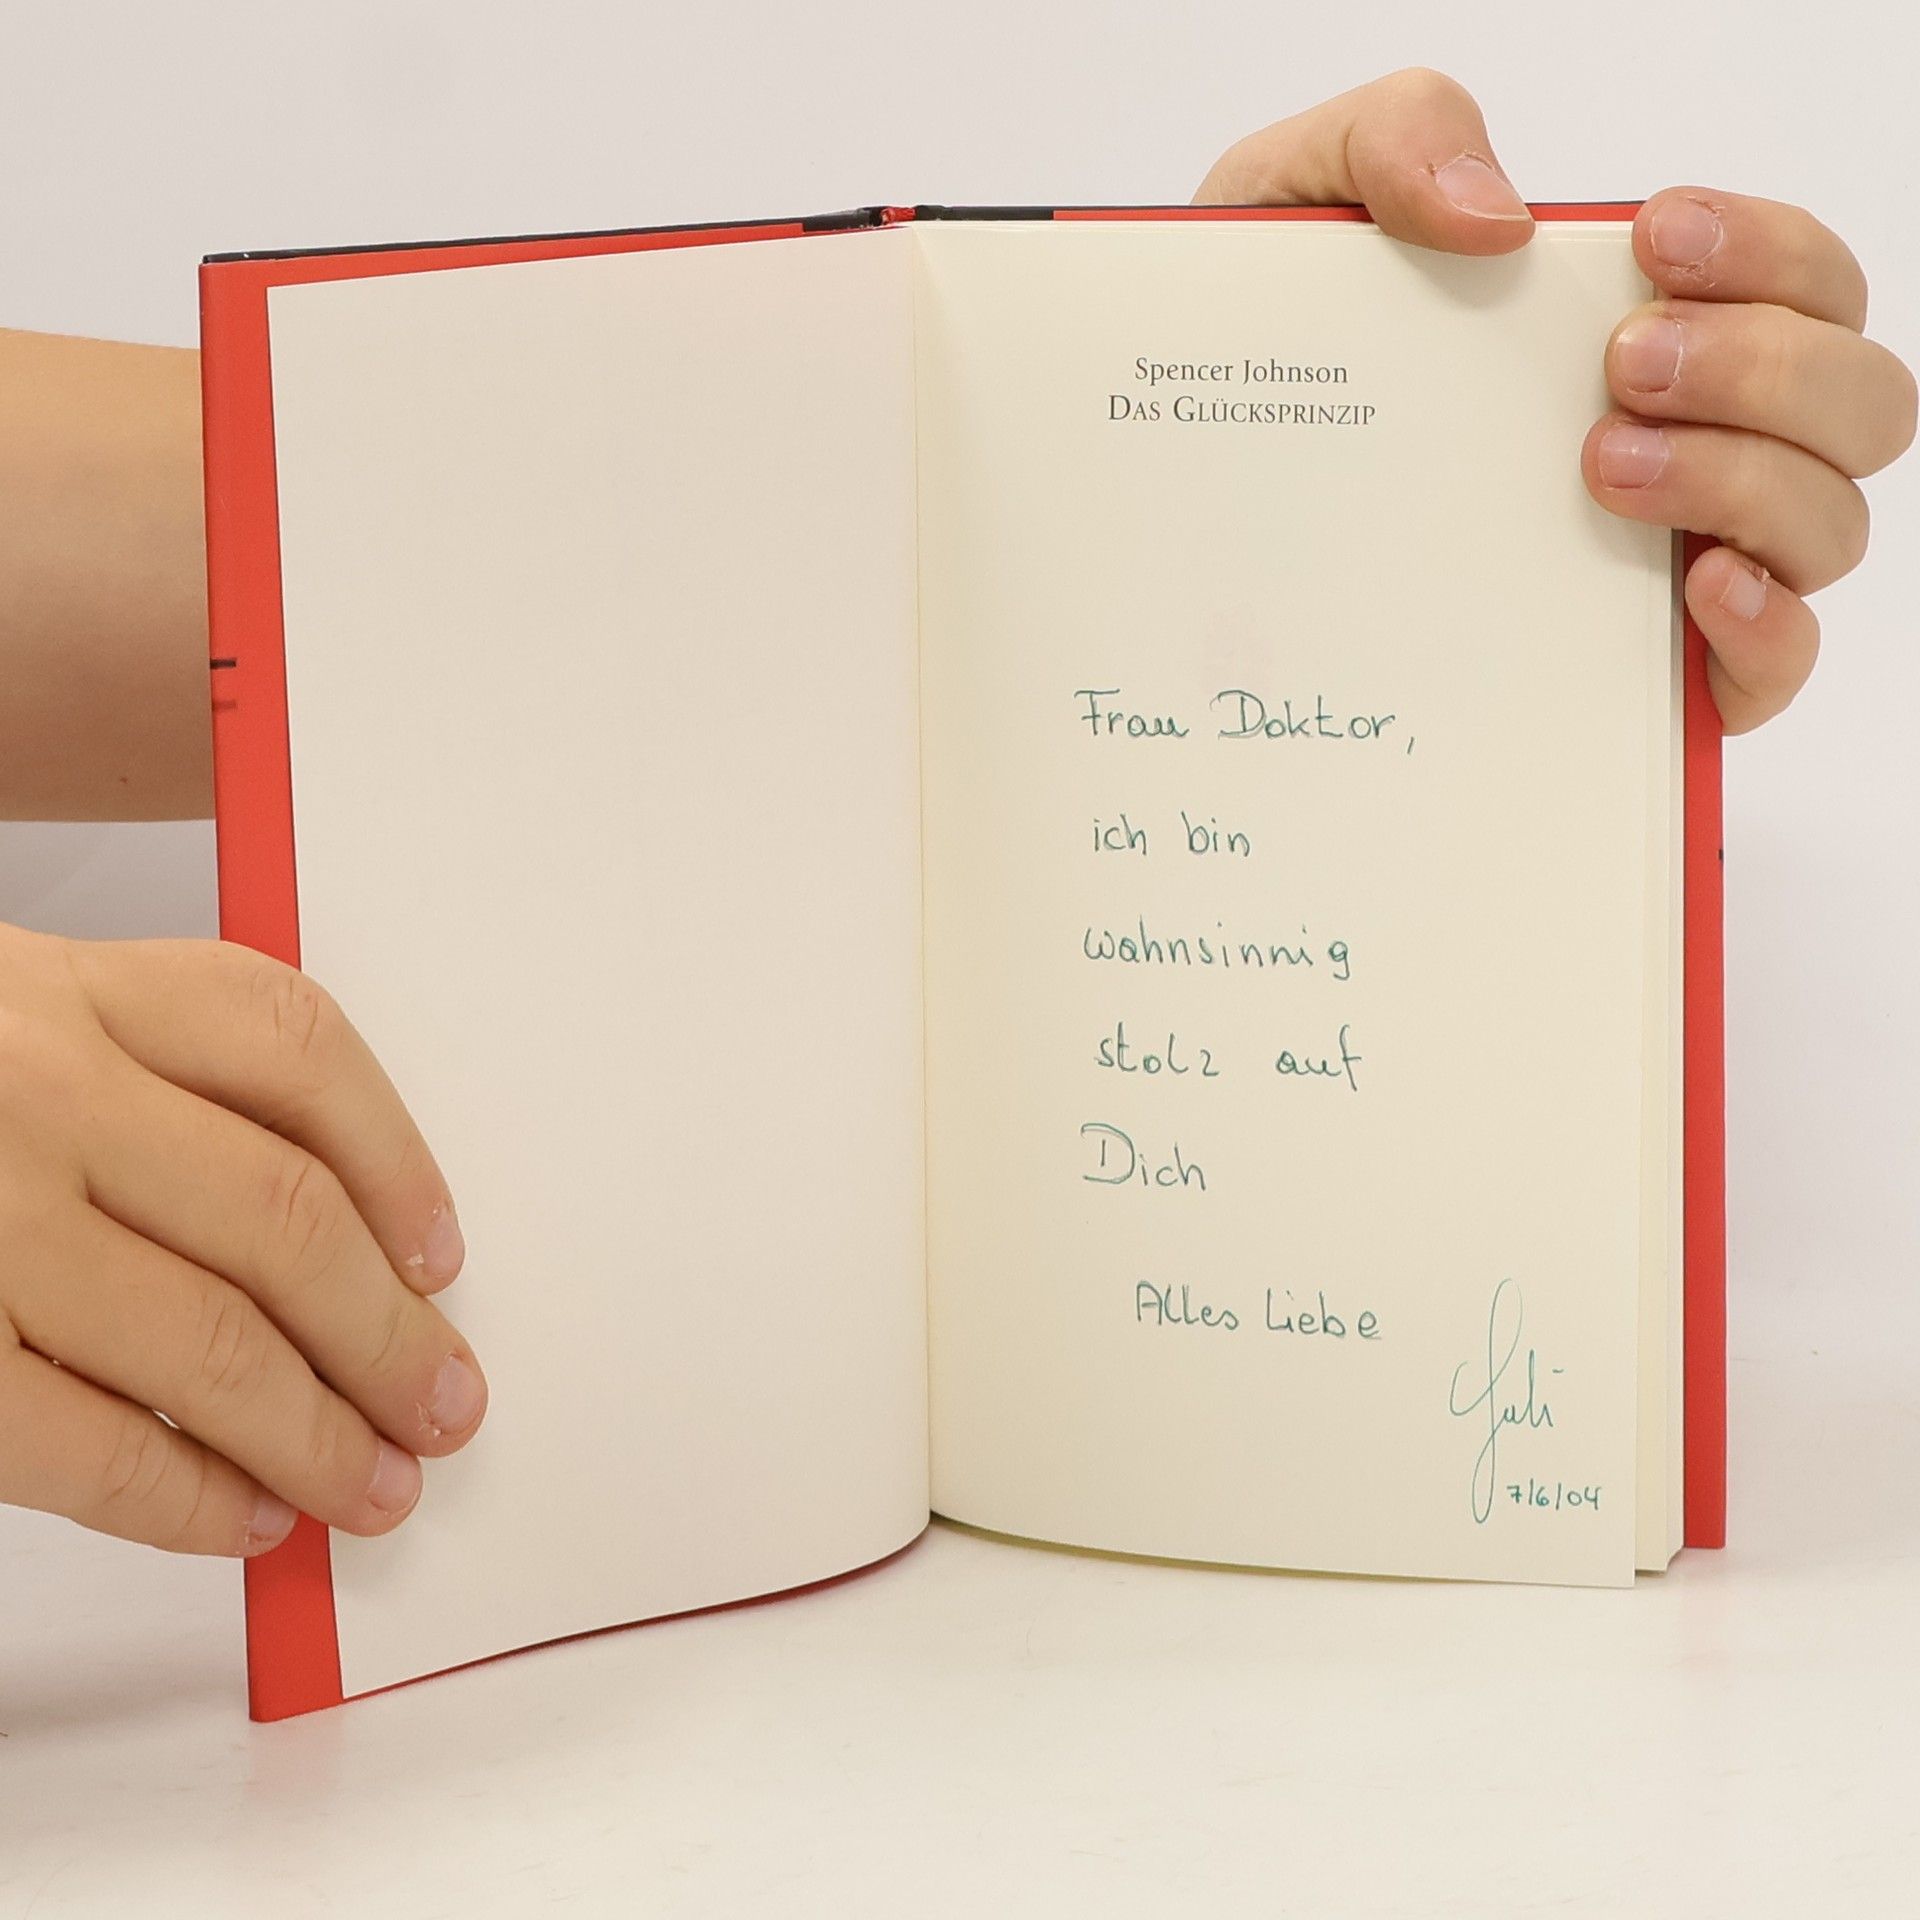 Spencer Johnson
DAS GLÜCKSPRINZIP
Frau Doktor,
ich bin
wahnsinnig
stolz auf
Dich
Alles Liebe
7/6/04